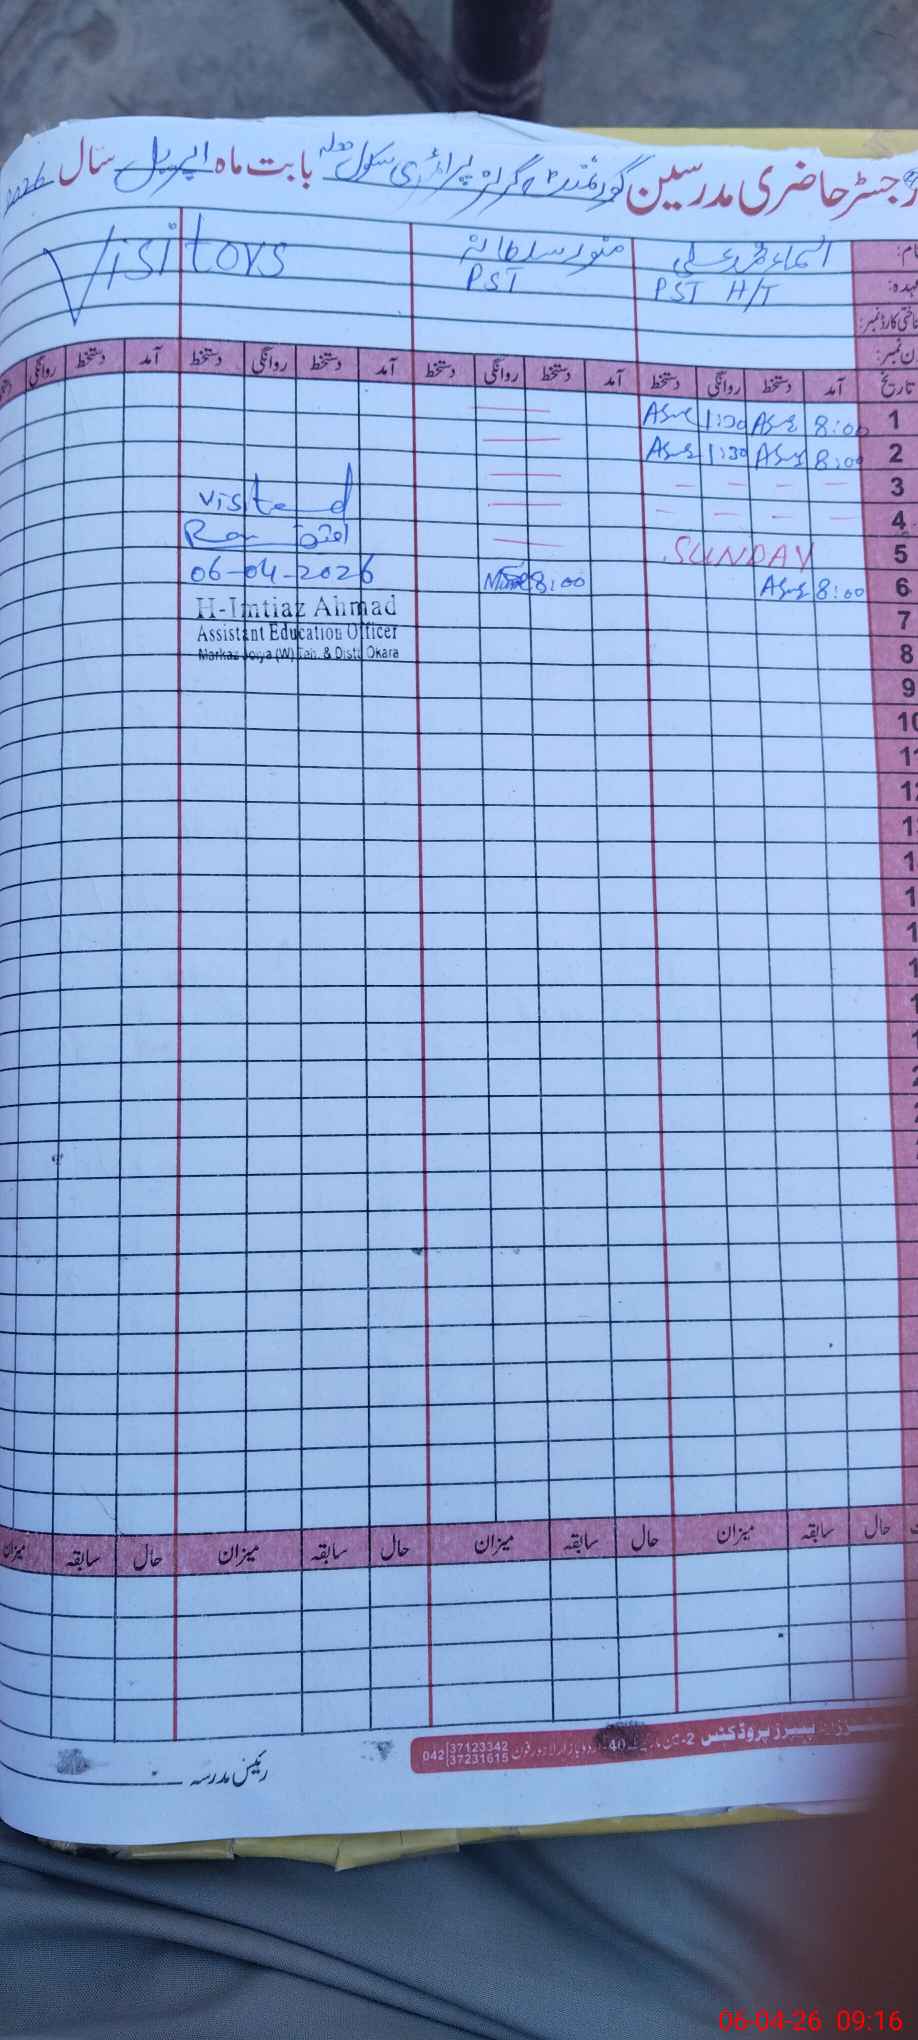 رجسٹر حاضری مدرسین گورنمنٹ گرلز پرائمری سکول بابت ماہ اپریل سال 2026
نام: اسماء محمد علی منور سلطانہ Visitors
عہدہ: PST H/T PST
تاریخ آمد دستخط روانگی دستخط آمد دستخط روانگی دستخط آمد دستخط روانگی دستخط آمد دستخط روانگی
1 8:00 1:30
2 8:00 1:30
3 - - - -
4 - - - - Visited
5 SUNDAY
6 8:00 8:00 06-04-2026
7 H-Imtiaz Ahmad
Assistant Education Officer
8 Markaz Joiya (W) Teh. & Distt Okara
9
10
حال سابقہ میزان حال سابقہ میزان حال سابقہ میزان حال سابقہ میزان
پیپرز پروڈکٹس 2- 40- اردو بازار لاہور فون 042 37123342 37231615
رئیس مدرسہ
06-04-26 09:16